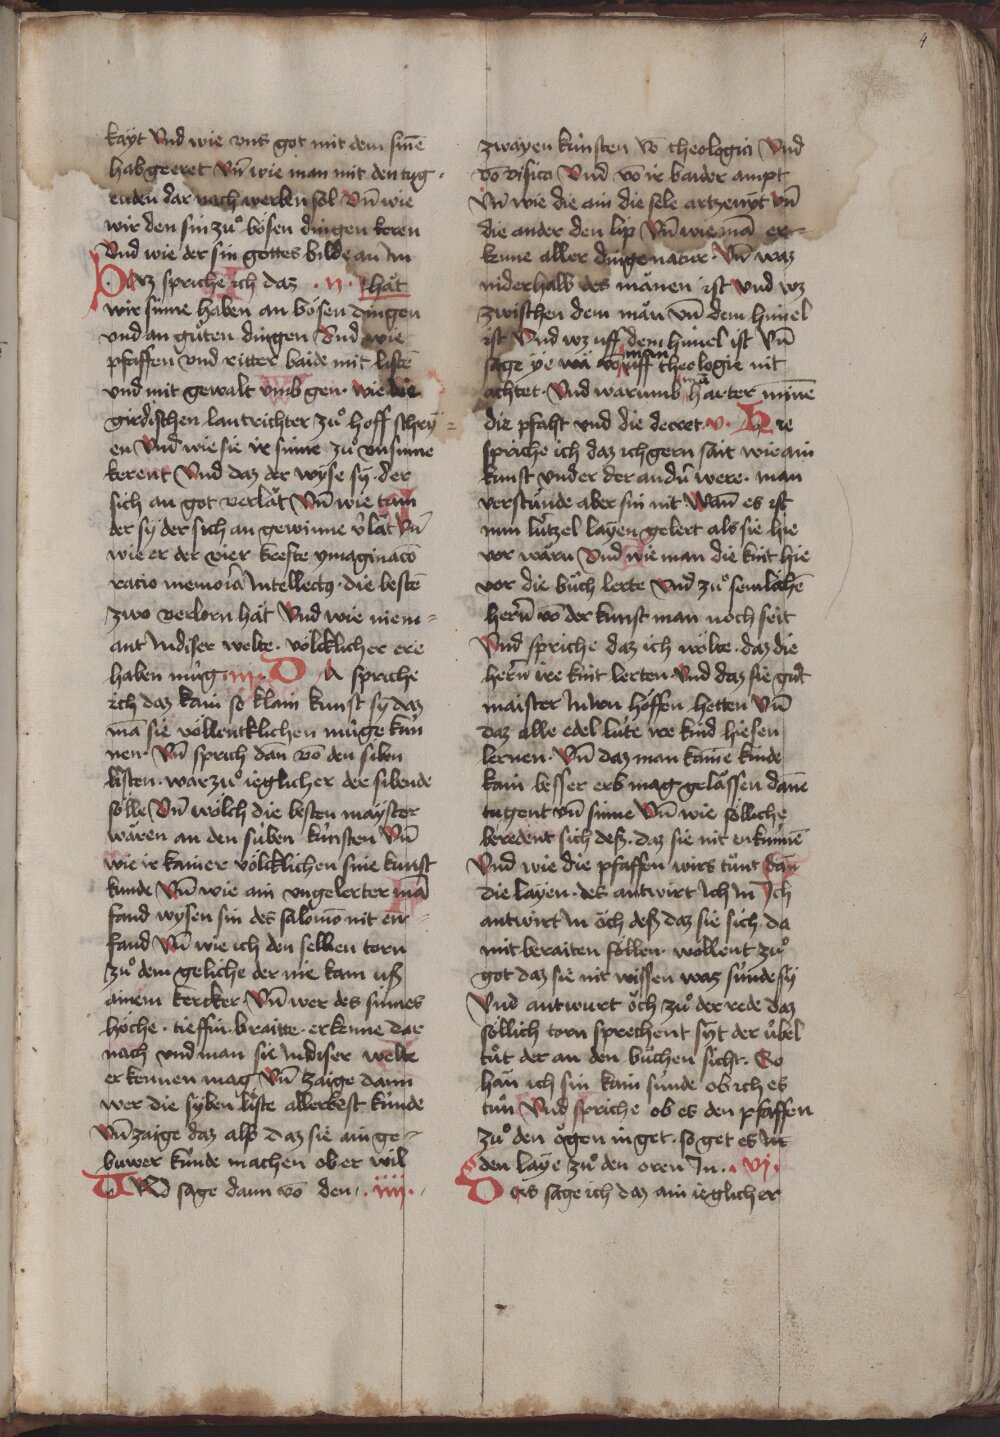 4
kayt Vnd wie vns got mit dem sinē
hab geeret Vn̄ wie man mit den tug-
enden dar nach werben sol Vn̄ wie
wir den sin zuͦ bösen dingen keren
Vnd wie der sin gottes bilde an Im
Daz spriche ich daz .ij. hät
wir sinne haben an bösen dingen
vnd an guͦten dingen Vnd wie
pfaffen vnd ritter baide mit listē
vnd mit gewalt vmb gen. wie die
girdischen lantrichter zuͦ hoff schry-
en Vnd wie sie ir sinne zuͦ vnsinne
kerent Vnd daz der wyse sy. der
sich an got verlät Vn̄ wie tam
der sy der sich an gewinne v̄lät Vn̄
wie er der vier krefte ymaginacō
racio memoria Intellectꝰ. die bestē
zwo verlorn hät Vnd wie niem-
ant Indiser welte. völcklicher ere
haben müg .iij. Da spriche
ich daz kain so klain kunst sy daz
mā sie vollentklichen müge kun
nen. Vn̄ sprich dan̄ vō den siben
listen. warzuͦ ieglicher der sibende
sölle Vn̄ wölch die besten mayster
wären an den siben künsten Vn̄
wie ir kainer völcklichen sine kunst
kunde Vn̄ wie ain vngelerter mā
fand wysen sin des salomō nit en-
fand Vn̄ wie ich den selben torn
zuͦ dem geliche der nie kam uß
ainem kercker. Vn̄ wer des sinnes
höche. tieffin. braitte. erkenne dar
nach vnd man sie Indiser welte
erkennen mag Vn̄ zaige dann
wer die syben liste allerbest kunde
Vn̄ zaige daz alß daz sie ain ge-
buwer kunde machen ob er wil
Vnd sage dann vō den. .iiij.
zwayen künsten vō theologia Vnd
vō visica Vnd vō ir baider ampt
Vn̄ wie die ain die sele artzenyt vn̄
die ander den lip Vn̄ wie mā er-
kenne aller dinge natur. Vn̄ waz
niderhalb des mänen ist vnd wz
zwischen dem män vn̄ dem himel
ist Vnd wz uff dem himel ist Vn̄
man
sage ye wä uff theologie nit
achtet. Vnd warumb mā harter minē
die pfaht vnd die decret .v. Hie
spriche ich daz ich gern sait wie ain
kunst vnder der andn̄ were. man
verstünde aber sin nit. Wan̄ es ist
nun lützel layen gelert als sie hie
vor wärn Vnd wie man die kint hie
vor die büch lerte Vnd zuͦ semlichē
hern̄ vō der kunst man noch seit
Vnd spriche daz ich wölte. daz die
hern̄ ire kint lerten. Vnd daz sie guͦt
maister Inirn höffen hetten Vn̄
daz alle edel lüte ire kind hiesen
lernen. Vn̄ daz man kaine kinde
kain besser erb mag gelässen dan̄e
tugent vn̄ sinne Vn̄ wie sölliche
beredent sich deß. daz sie nit enkunnē
Vnd wie die pfaffen wirs tünt dan̄
die layen. des antwirt Ich In Ich
antwirt In öch deß daz sie sich da
mit beraiten söllen. wöllent zuͦ
got daz sie nit wissen waz sünde sy
Vnd antwurt öch zuͦ der rede daz
söllich torn sprechent syt der übel
tuͦt der an den büchen sicht. So
han ich sin kain sünde ob ich es
tün Vnd spriche ob es den pfaffen
zuͦ den ögen in get. so get es
den laye zuͦ den oren In. .vj.
Doris sage ich daz ain ieglicher